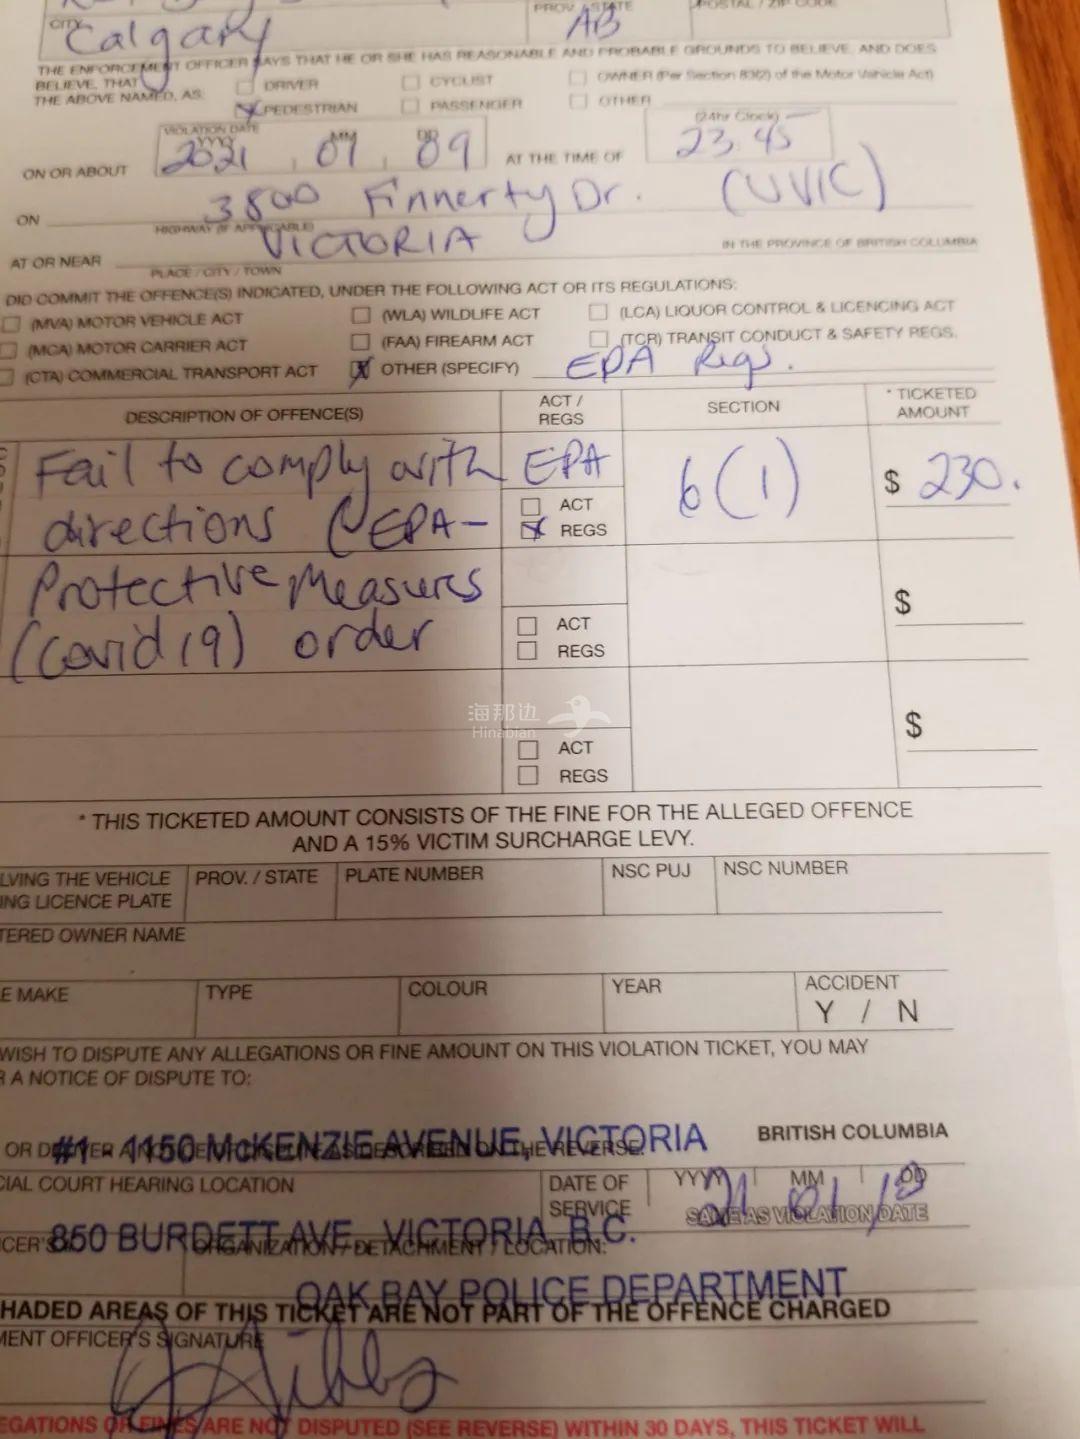 CITY
PROV / STATE
POSTAL / ZIP CODE
Calgary
AB
THE ENFORCEMENT OFFICER SAYS THAT HE OR SHE HAS REASONABLE AND PROBABLE GROUNDS TO BELIEVE, AND DOES
BELIEVE, THAT
THE ABOVE NAMED, AS:
DRIVER
CYCLIST
OWNER (Per Section 83(2) of the Motor Vehicle Act)
PEDESTRIAN
PASSENGER
OTHER
VIOLATION DATE
YYYY MM DD
(24hr Clock)
ON OR ABOUT 2021 01 09 AT THE TIME OF 23:45
ON 3800 Finnerty Dr. (UVIC)
HIGHWAY (IF APPLICABLE)
AT OR NEAR VICTORIA IN THE PROVINCE OF BRITISH COLUMBIA
PLACE / CITY / TOWN
DID COMMIT THE OFFENCE(S) INDICATED, UNDER THE FOLLOWING ACT OR ITS REGULATIONS:
(MVA) MOTOR VEHICLE ACT
(WLA) WILDLIFE ACT
(LCA) LIQUOR CONTROL & LICENCING ACT
(MCA) MOTOR CARRIER ACT
(FAA) FIREARM ACT
(TCR) TRANSIT CONDUCT & SAFETY REGS.
(CTA) COMMERCIAL TRANSPORT ACT
OTHER (SPECIFY) EPA Regs.
DESCRIPTION OF OFFENCE(S)
ACT /
REGS
SECTION
* TICKETED
AMOUNT
Fail to comply with
directions (EPA-
EPA
ACT
REGS
6(1)
$ 230.
Protective Measures
(covid 19) order
ACT
REGS
$
海那边
Hinabian
ACT
REGS
$
* THIS TICKETED AMOUNT CONSISTS OF THE FINE FOR THE ALLEGED OFFENCE
AND A 15% VICTIM SURCHARGE LEVY.
LVING THE VEHICLE
ING LICENCE PLATE
PROV. / STATE
PLATE NUMBER
NSC PUJ
NSC NUMBER
TERED OWNER NAME
E MAKE
TYPE
COLOUR
YEAR
ACCIDENT
Y / N
WISH TO DISPUTE ANY ALLEGATIONS OR FINE AMOUNT ON THIS VIOLATION TICKET, YOU MAY
R A NOTICE OF DISPUTE TO:
#1 - 1150 McKENZIE AVENUE, VICTORIA
BRITISH COLUMBIA
OR DELIVER A NOTICE OF DISPUTE AS DESCRIBED ON THE REVERSE.
CIAL COURT HEARING LOCATION
DATE OF
SERVICE
YYYY MM DD
21 01
SAME AS VIOLATION DATE
850 BURDETT AVE., VICTORIA, B.C.
CER'S
ORGANIZATION / DETACHMENT / LOCATION:
OAK BAY POLICE DEPARTMENT
HADED AREAS OF THIS TICKET ARE NOT PART OF THE OFFENCE CHARGED
MENT OFFICER'S SIGNATURE
EGATIONS OR FINES ARE NOT DISPUTED (SEE REVERSE) WITHIN 30 DAYS, THIS TICKET WILL